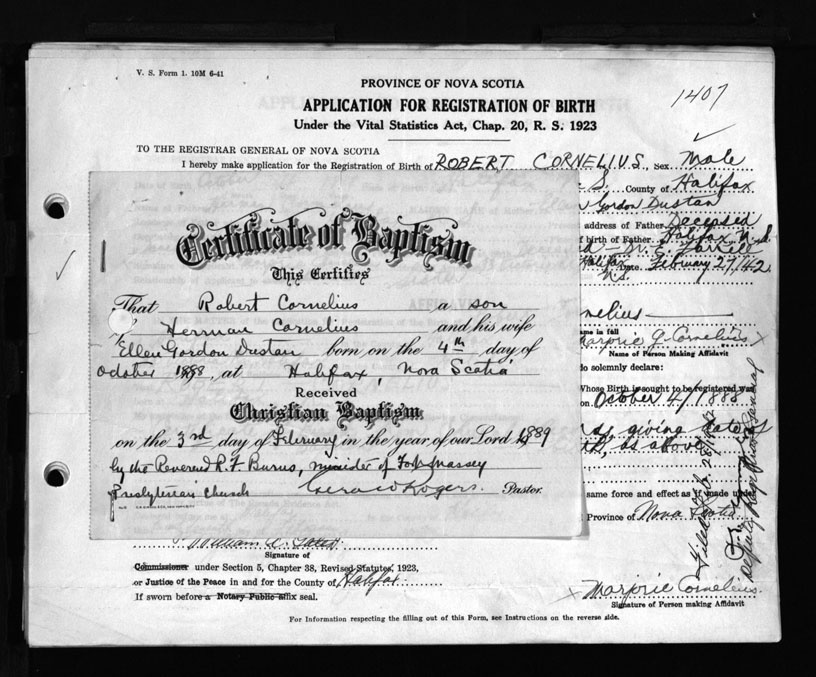 V. S. Form 1. 10M 6-41
PROVINCE OF NOVA SCOTIA
1407
APPLICATION FOR REGISTRATION OF BIRTH
Under the Vital Statistics Act, Chap. 20, R. S. 1923
TO THE REGISTRAR GENERAL OF NOVA SCOTIA
I hereby make application for the Registration of Birth of ROBERT CORNELIUS, Sex Male
S. County of Halifax
Gordon Dustan
address of Father Deceased
f birth of Father Halifax N.S.
Halifax N.S. Date February 27/42
Certificate of Baptism
This Certifies
That Robert Cornelius a son
of Herman Cornelius and his wife
Ellen Gordon Dustan born on the 4th day of
October 1888, at Halifax, Nova Scotia
Received
Christian Baptism
on the 3rd day of February in the year of our Lord 1889
by the Reverend R. F. Burns, minister of Fort Massey
Presbyterian Church Gerald Rogers. Pastor.
nelius
me in full
Marjorie G. Cornelius
Name of Person Making Affidavit
do solemnly declare:
Whose Birth is sought to be registered was
on October 4/1888
as giving date of
birth, as above
same force and effect as if made under
Province of Nova Scotia
Filed Feb. 28/1942
Deputy Registrar General
Signature of
Commissioner under Section 5, Chapter 38, Revised Statutes, 1923,
or Justice of the Peace in and for the County of Halifax
If sworn before a Notary Public affix seal.
x Marjorie Cornelius
Signature of Person making Affidavit
For Information respecting the filling out of this Form, see Instructions on the reverse side.